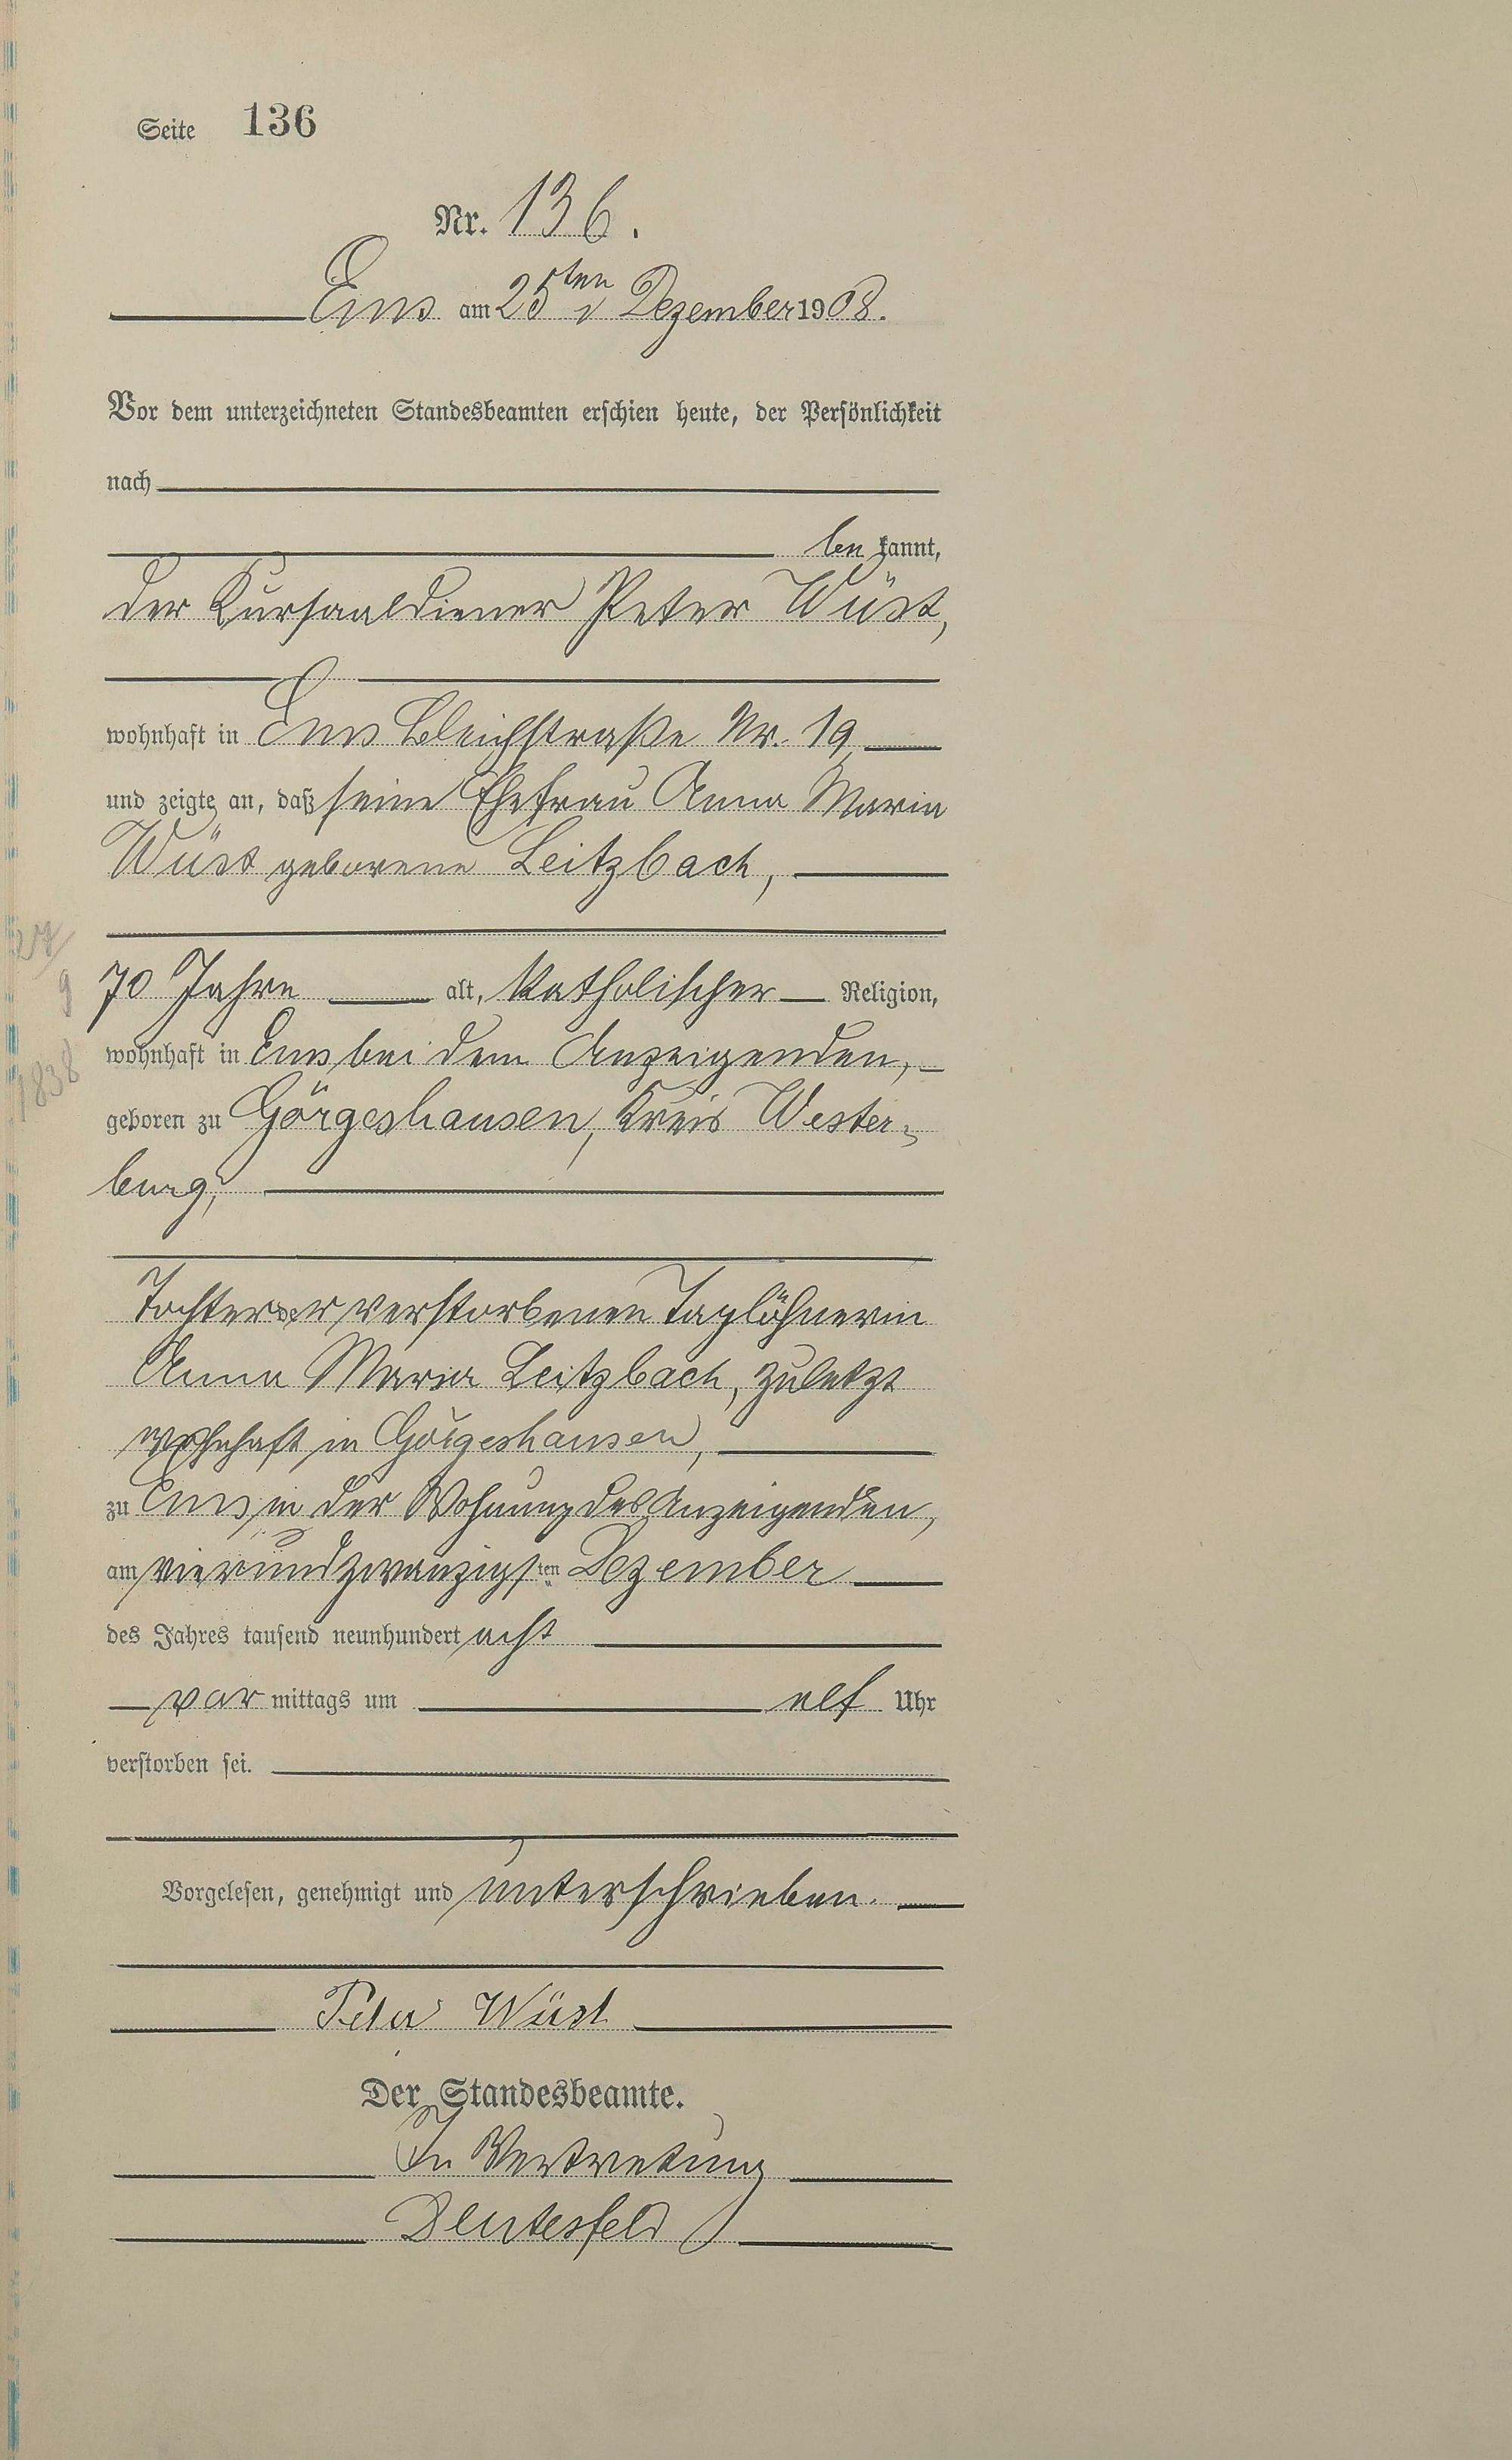 Seite 136
Nr. 136.
Ems am 25ten Dezember 1908.
Vor dem unterzeichneten Standesbeamten erschien heute, der Persönlichkeit
nach
be kannt,
der Kursaaldiener Peter Wüst,
wohnhaft in Ems Bleichstraße Nr. 19
und zeigte an, daß seine Ehefrau Anna Maria
Wüst geborene Leitzbach,
27/
9
1838
70 Jahre alt, katholischer Religion,
wohnhaft in Ems bei dem Anzeigenden,
geboren zu Görgeshausen, Kreis Wester-
burg,
Tochter der verstorbenen Taglöhnerin
Anna Maria Leitzbach, zuletzt
wohnhaft in Görgeshausen,
zu Ems, in der Wohnung des Anzeigenden,
am vierundzwanzigsten Dezember
des Jahres tausend neunhundert acht
vor mittags um elf Uhr
verstorben sei.
Vorgelesen, genehmigt und unterschrieben.
Peter Wüst
Der Standesbeamte.
In Vertretung